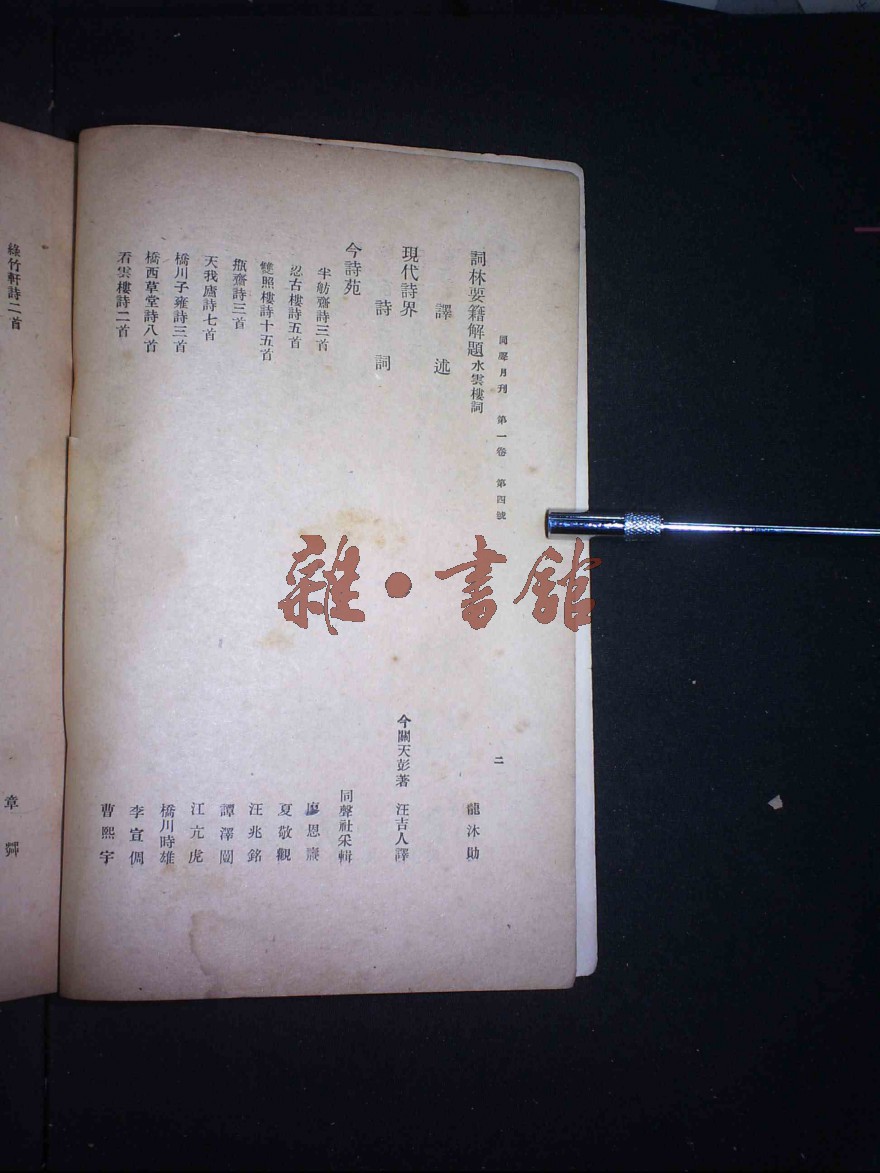 同聲月刊 第一卷 第四號 二
詞林要籍解題 水雲樓詞 龍沐勛
譯述
現代詩界 今關天彭著 汪吉人譯
詩詞
今詩苑 同聲社采輯
半舫齋詩三首 廖恩燾
忍古樓詩五首 夏敬觀
雙照樓詩十五首 汪兆銘
瓶齋詩三首 譚澤闓
天我廬詩七首 江亢虎
橋川子雍詩三首 橋川時雄
橋西草堂詩八首 李宣倜
看雲樓詩二首 曹熙宇
綠竹軒詩二首 章
雜·書館